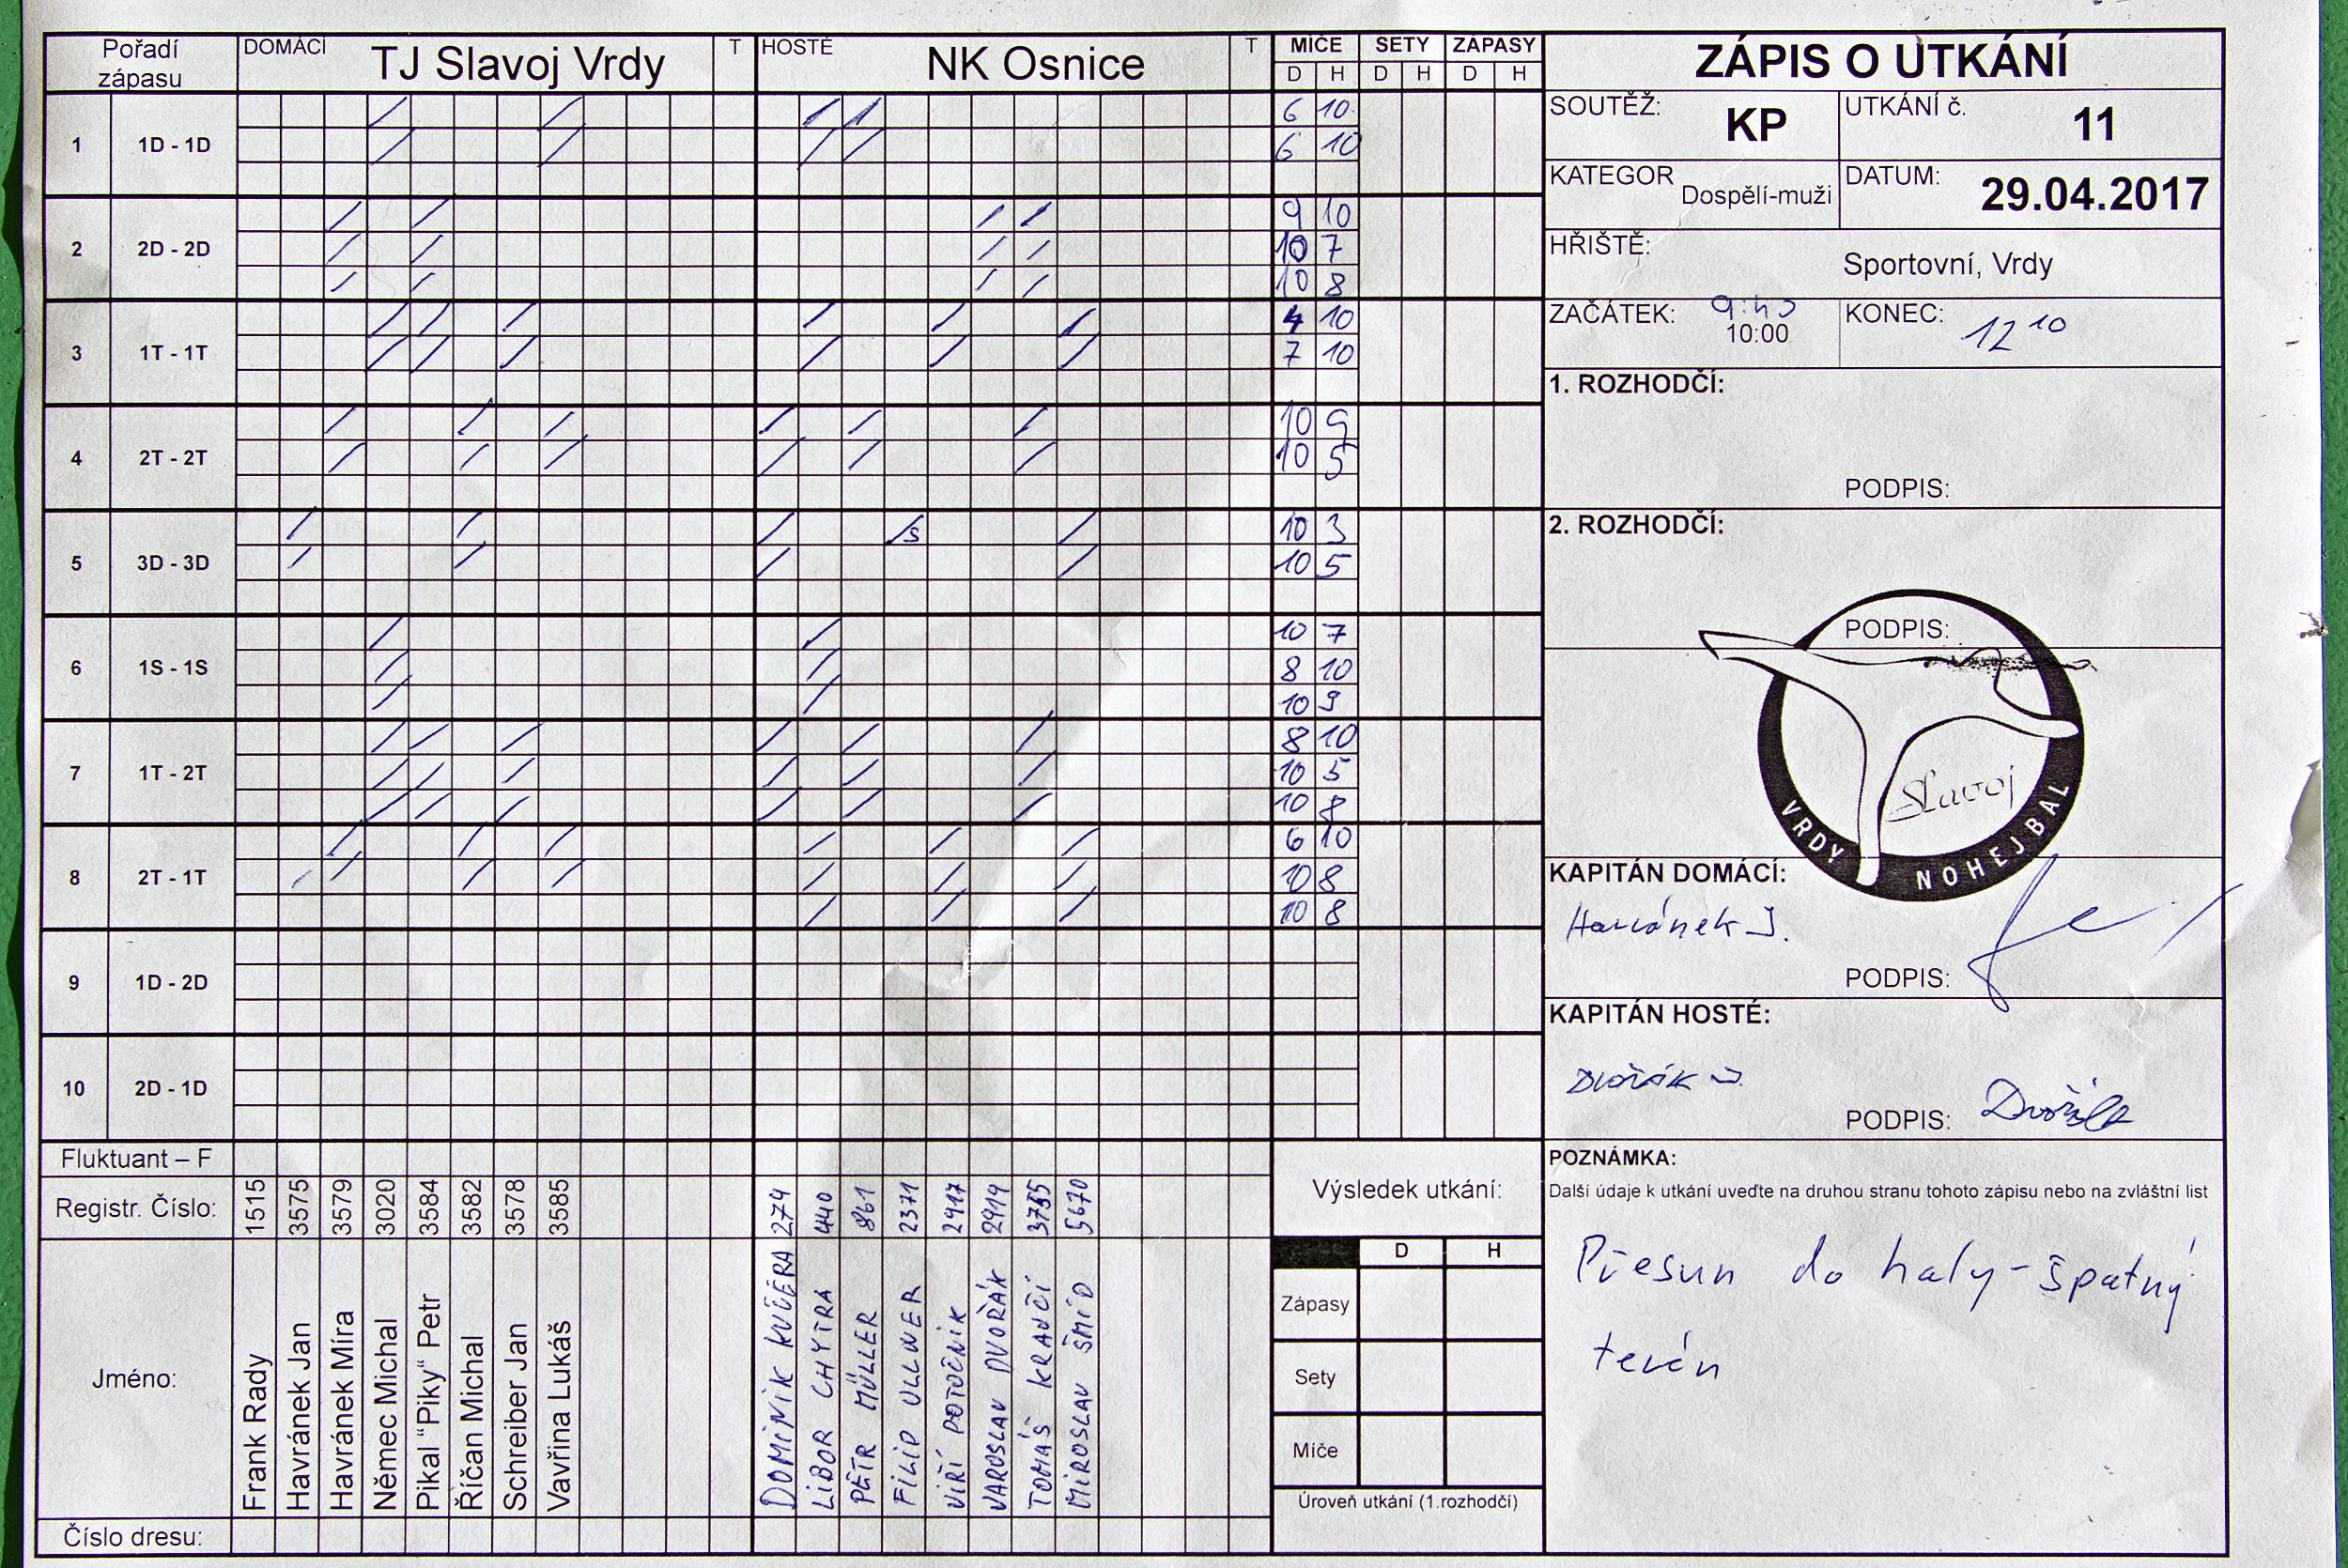 Pořadí zápasu DOMÁCÍ TJ Slavoj Vrdy T HOSTÉ NK Osnice T MÍČE SETY ZÁPASY
D H D H D H
1 1D - 1D 6 10
6 10
2 2D - 2D 9 10
10 7
10 8
3 1T - 1T 4 10
7 10
4 2T - 2T 10 9
10 5
5 3D - 3D S 10 3
10 5
6 1S - 1S 10 7
8 10
10 9
7 1T - 2T 8 10
10 5
10 8
8 2T - 1T 6 10
10 8
10 8
9 1D - 2D
10 2D - 1D
Fluktuant – F
Registr. Číslo: 1515 3575 3579 3020 3584 3582 3578 3585 274 440 861 2371 2917 2914 3755 5670
Jméno: Frank Rady
Havránek Jan
Havránek Míra
Němec Michal
Pikal “Piky“ Petr
Říčan Michal
Schreiber Jan
Vavřina Lukáš
DOMINIK KUČERA
LIBOR CHYTRA
PETR MÜLLER
FILIP ULLNER
JIŘÍ POTOČNÍK
JAROSLAV DVOŘÁK
TOMÁŠ KRAJČÍ
MIROSLAV ŠMÍD
Číslo dresu:
Výsledek utkání:
D H
Zápasy
Sety
Míče
Úroveň utkání (1.rozhodčí)
ZÁPIS O UTKÁNÍ
SOUTĚŽ: KP UTKÁNÍ č. 11
KATEGOR Dospělí-muži DATUM: 29.04.2017
HŘIŠTĚ: Sportovní, Vrdy
ZAČÁTEK: 10:00 KONEC: 12 10
1. ROZHODČÍ:
PODPIS:
2. ROZHODČÍ:
PODPIS:
Slavoj
VRDY NOHEJBAL
KAPITÁN DOMÁCÍ:
Havránek J.
PODPIS:
KAPITÁN HOSTÉ:
Dvořák J.
PODPIS: Dvořák
POZNÁMKA:
Další údaje k utkání uveďte na druhou stranu tohoto zápisu nebo na zvláštní list
Přesun do haly - špatný
terén